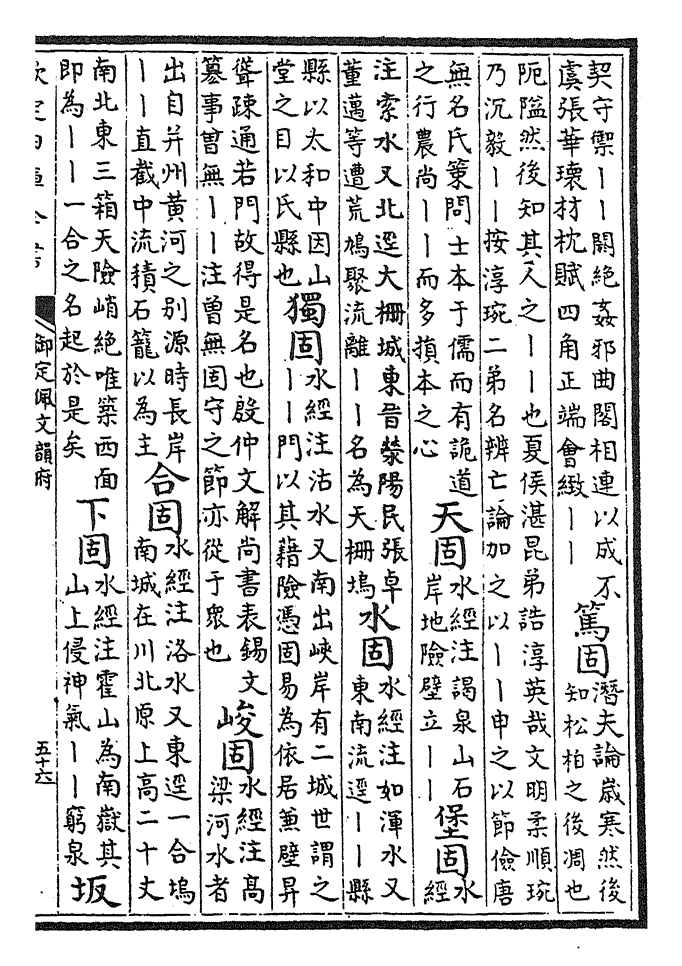 契守禦丨丨關絶姦邪曲閣相連以成不
虞張華瓌材枕賦四角正端會緻丨丨
篤固
潛夫論歲寒然後
知松柏之後凋也
阨隘然後知其人之丨丨也夏侯湛昆弟誥淳英哉文明柔順琬
乃沉毅丨丨按淳琬二弟名辨亡論加之以丨丨申之以節儉唐
無名氏策問士本于儒而有詭道
之行農尚丨丨而多損本之心
天固
水經注謁泉山石
岸地險壁立丨丨
堡固
水
經
注索水又北逕大柵城東晉滎陽民張卓
董邁等遭荒鳩聚流離丨丨名為天柵塢
水固
水經注如渾水又
東南流逕丨丨縣
縣以太和中因山
堂之目以氏縣也
獨固
水經注沽水又南出峽岸有二城世謂之
丨丨門以其藉險憑固易為依居兼壁昇
聳疎通若門故得是名也殷仲文解尚書表錫文
篡事曾無丨丨注曾無固守之節亦從于衆也
峻固
水經注高
梁河水者
出自并州黃河之別源時長岸
丨丨直截中流積石籠以為主
合固
水經注洛水又東逕一合塢
南城在川北原上高二十丈
南北東三箱天險峭絶唯築西面
即為丨丨一合之名起於是矣
下固
水經注霍山為南嶽其
山上侵神氣丨丨窮泉
坂
欽定四庫全書
御定佩文韻府
五十六